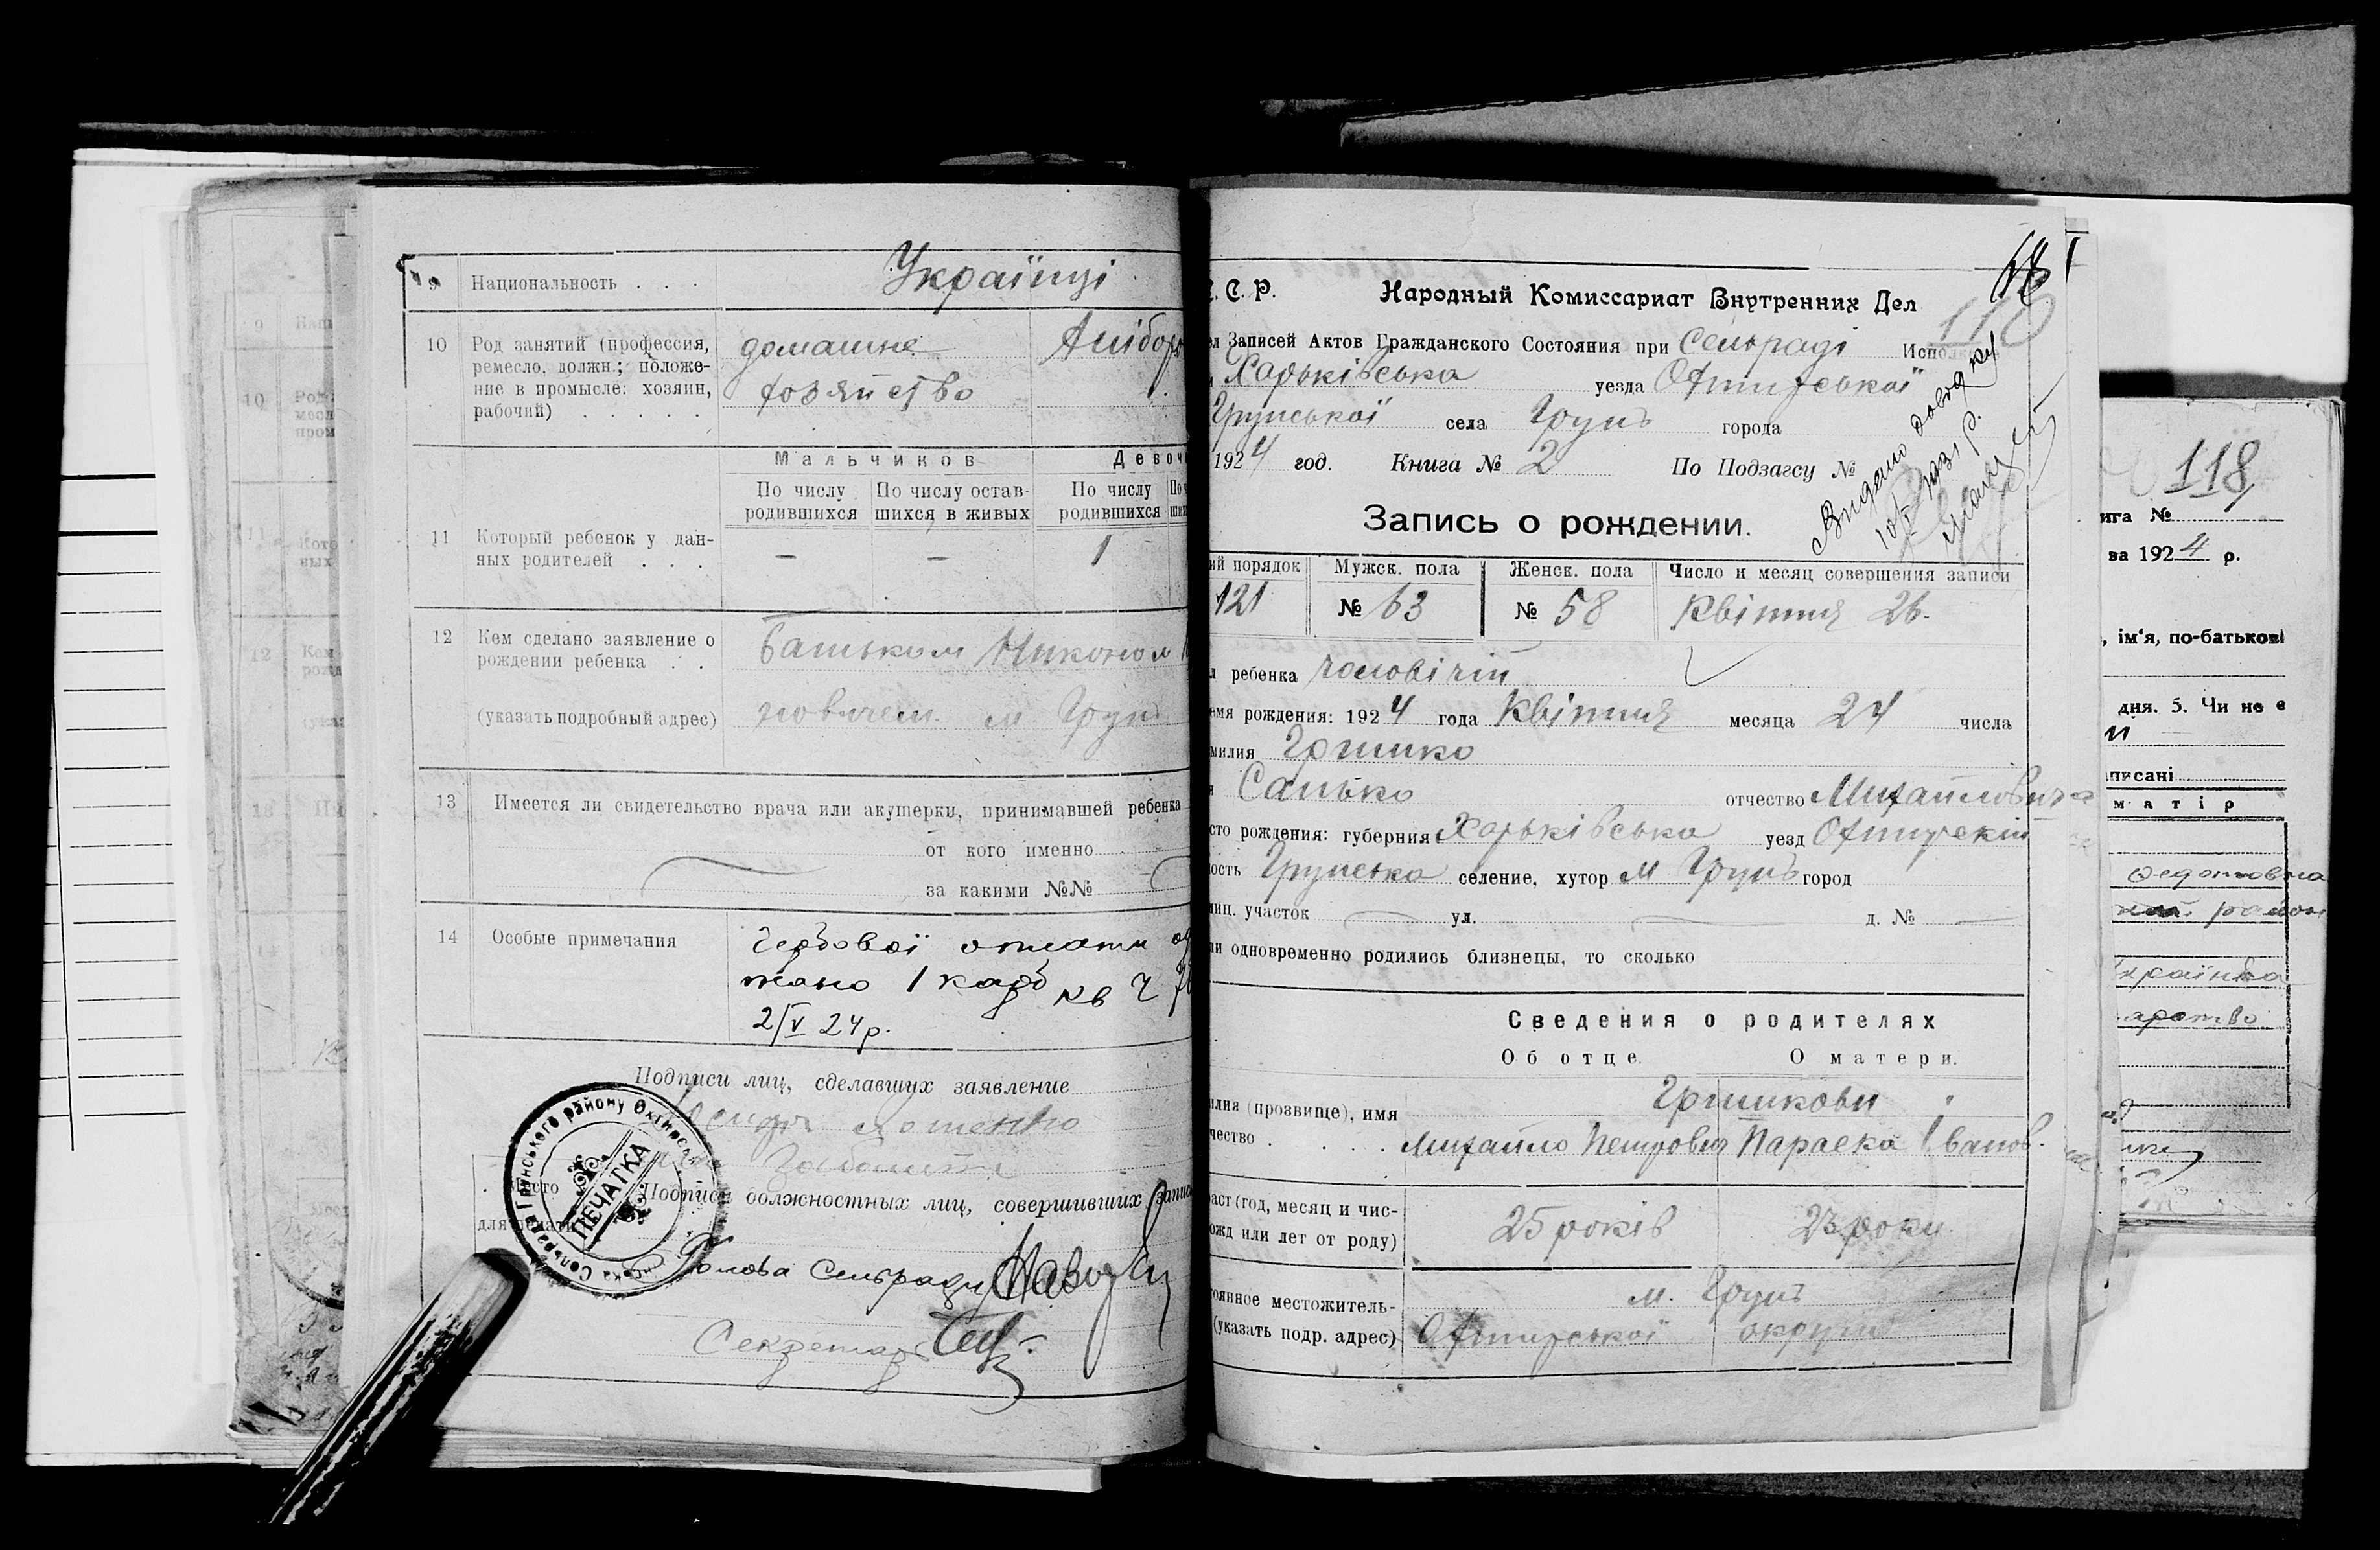 9 Национальность . . . Українці
10 Род занятий (профессия, ремесло, должн.; положе-
ние в промысле: хозяин, рабочий) . . . . .
домашнє
хозяйство
Мальчиков Девоч
По числу родившихся
По числу остав-
шихся в живых
По числу родившихся
11 Который ребенок у дан-
ных родителей . . .
— — 1
12 Кем сделано заявление о
рождении ребенка . .
батьком Никоном
(указать подробный адрес)
м Грунь
13 Имеется ли свидетельство врача или акушерки, принимавшей ребенка
от кого именно
за какими №№
14 Особые примечания
Гербової оплати
1 карб кв Ч
2/V 24 р.
Подписи лиц, сделавших заявление
Место
для печати
ПЕЧАТКА
Сельрада Грунського району Охтирсь
Подписи должностных лиц, совершивших запись
Голова Сельради
Секретар
С. Р. Народный Комиссариат Внутренних Дел
118
Записей Актов Гражданского Состояния при Сельраді Исполк
Харьківська уезда Охтирської
Грунської села Грунь города
1924 год. Книга № 2 По Подзагсу №
Видано довідку
1931 р.
Запись о рождении.
ий порядок Мужск. пола Женск. пола Число и месяц совершения записи
121 № 63 № 58 Квітня 26.
ребенка чоловічій
емя рождения: 1924 года Квітня месяца 24 числа
милия Гришко
Санько отчество Михайловича
сто рождения: губерния Харьківська уезд Охтирскій
ость Грунська селение, хутор м Грунь город
участок ул. д. №
ли одновременно родились близнецы, то сколько
Сведения о родителях
Об отце. О матери.
илия (прозвище), имя
чество . . . .
Гришкови
Михайло Петрович Параска Іванов.
аст (год, месяц и чис-
ожд или лет от роду)
25 років 23 роки
тоянное местожитель-
(указать подр. адрес)
м. Грунь
Охтирської округи
118
ига №
ва 1924 р.
, ім'я, по-батькові
дня. 5. Чи не є
писані
матір
Федотовна
район
Українка